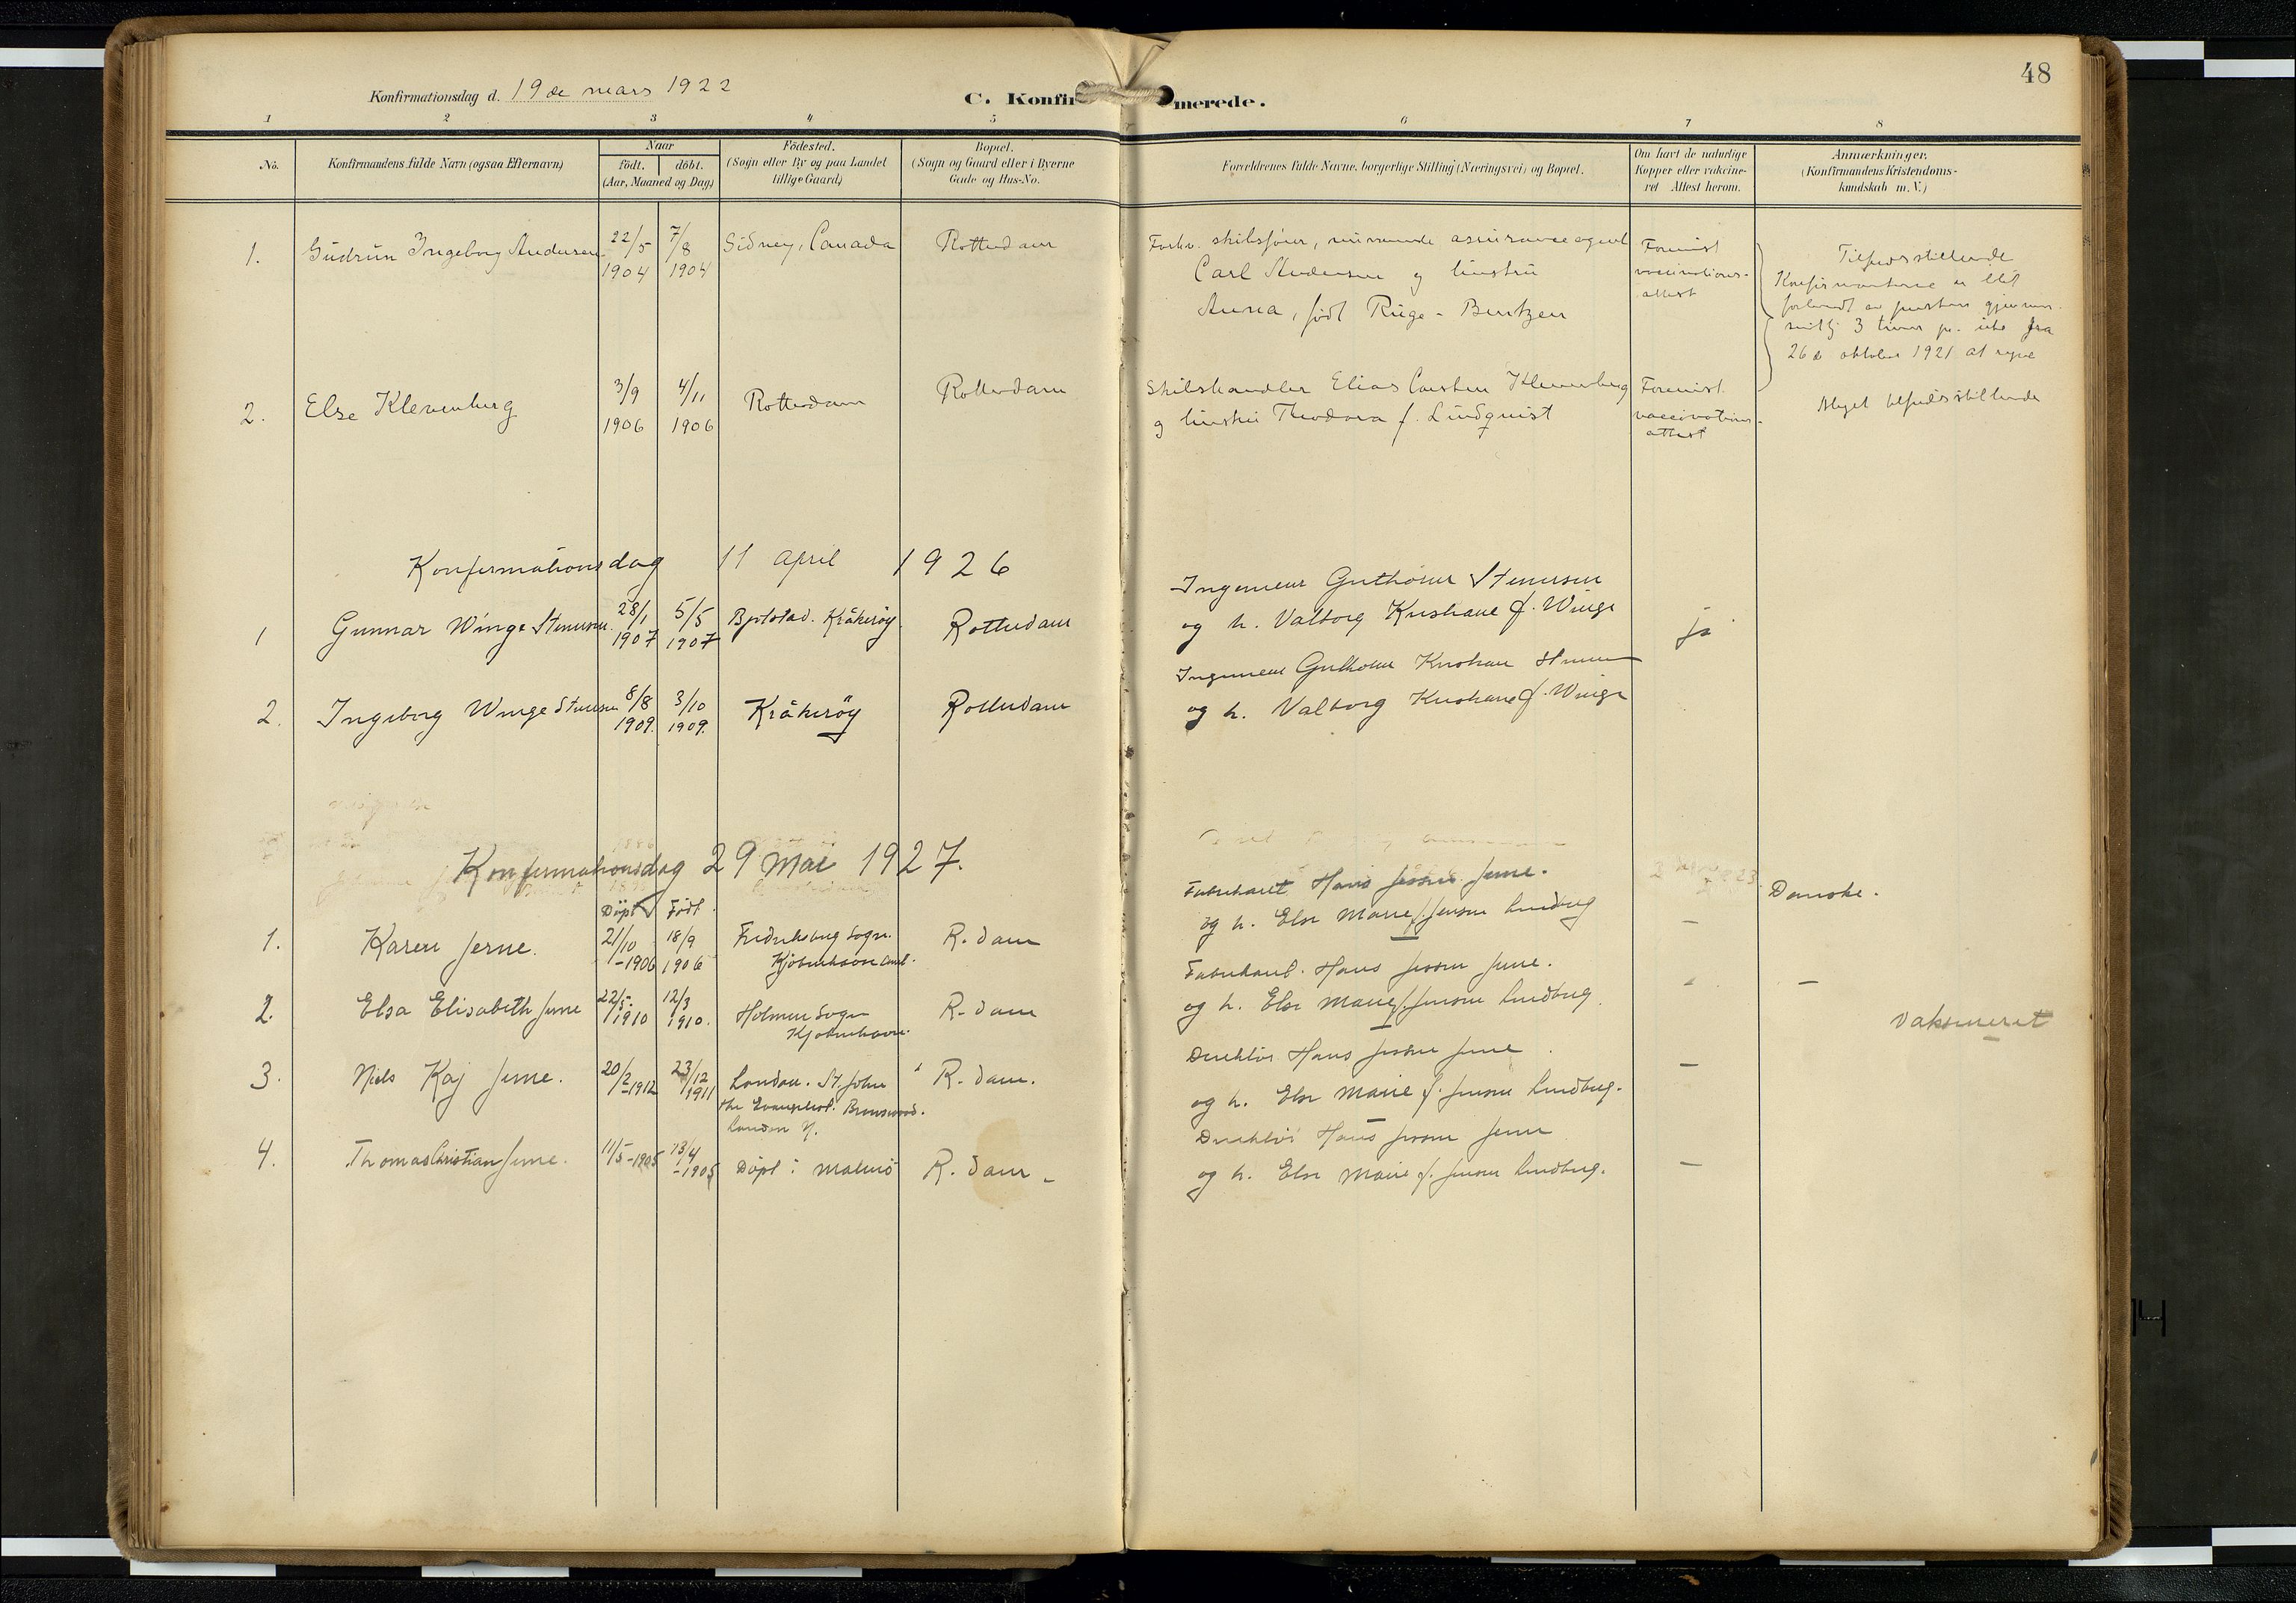 48
Konfirmationsdag d. 19de mars 1922
C. Konfirmerede.
1 2 3 4 5 6 7 8
No.
Konfirmandens fulde Navn (ogsaa Efternavn)
Naar
födt. döbt.
(Aar, Maaned og Dag)
Födested.
(Sogn eller By og paa Landet
tillige Gaard)
Bopæl.
(Sogn og Gaard eller i Byerne
Gade og Hus-No.
Forældrenes fulde Navne, borgerlige Stilling (Næringsvei) og Bopæl.
Om havt de naturlige
Kopper eller vakcine-
ret Attest herom.
Anmærkninger.
(Konfirmandens Kristendoms-
kundskab m. V.)
1. Gudrun Ingeborg Andersen 22/5 1904 7/8 1904 Sidney, Canada Rotterdam
Forhv. skibsfører, nuværende assuranceagent
Carl Andersen og hustru
Anna, født Ruge-Berntzen
Forevist
vaccinations-
attest
Tilfredsstillende
Konfirmantene er blit
forberedt av presten gjennem-
snitlig 3 timer pr. uke fra
26de oktober 1921 at regne
2. Else Klevenberg 3/9 1906 4/11 1906 Rotterdam Rotterdam
Skibshandler Elias Carsten Klevenberg
og hustru Theodora f. Lindquist
Forevist
vaccinations-
attest
Meget tilfredsstillende
Konfirmationsdag 11 april 1926
1 Gunnar Winge Stenersen 28/1 1907 5/5 1907 Kråkerøy Rotterdam
Ingeniør Guthorm Stenersen
og h. Valborg Kristiane f. Winge
ja
2. Ingeborg Winge Stenersen 8/8 1909. 3/10 1909. Kråkerøy Rotterdam
Ingeniør Guthorm Stenersen
og h. Valborg Kristiane f. Winge
Konfirmationsdag 29 Mai 1927.
Döpt Födt.
1. Karen Jerne. 21/10 -1906 18/9 1906 Fredriksberg Sogn.
Kjøbenhavn Amt. R. dam
Fabrikant Hans Jessen Jerne.
og h. Else Marie f. Jensen Lindberg
- Danske.
2. Elsa Elisabeth Jerne 22/5. 1910 12/3 1910. Holmen Sogn
Kjøbenhavn. R. dam
Fabrikant. Hans Jessen Jerne.
og h. Else Marie f. Jensen Lindberg.
- -
vaksineret
3. Niels Kaj Jerne. 20/2 -1912 23/12 1911 London. St. John
the Evangelist. Brownswood.
London N. R. dam.
Direktör Hans Jessen Jerne.
og h. Else Marie f. Jensen Lindberg.
-
4. Thomas Christian Jerne. 11/5 -1905 13/4 -1905 Döpt i Malmö R. dam -
Direktör Hans Jessen Jerne
og h. Else Marie f. Jensen Lindberg.
-